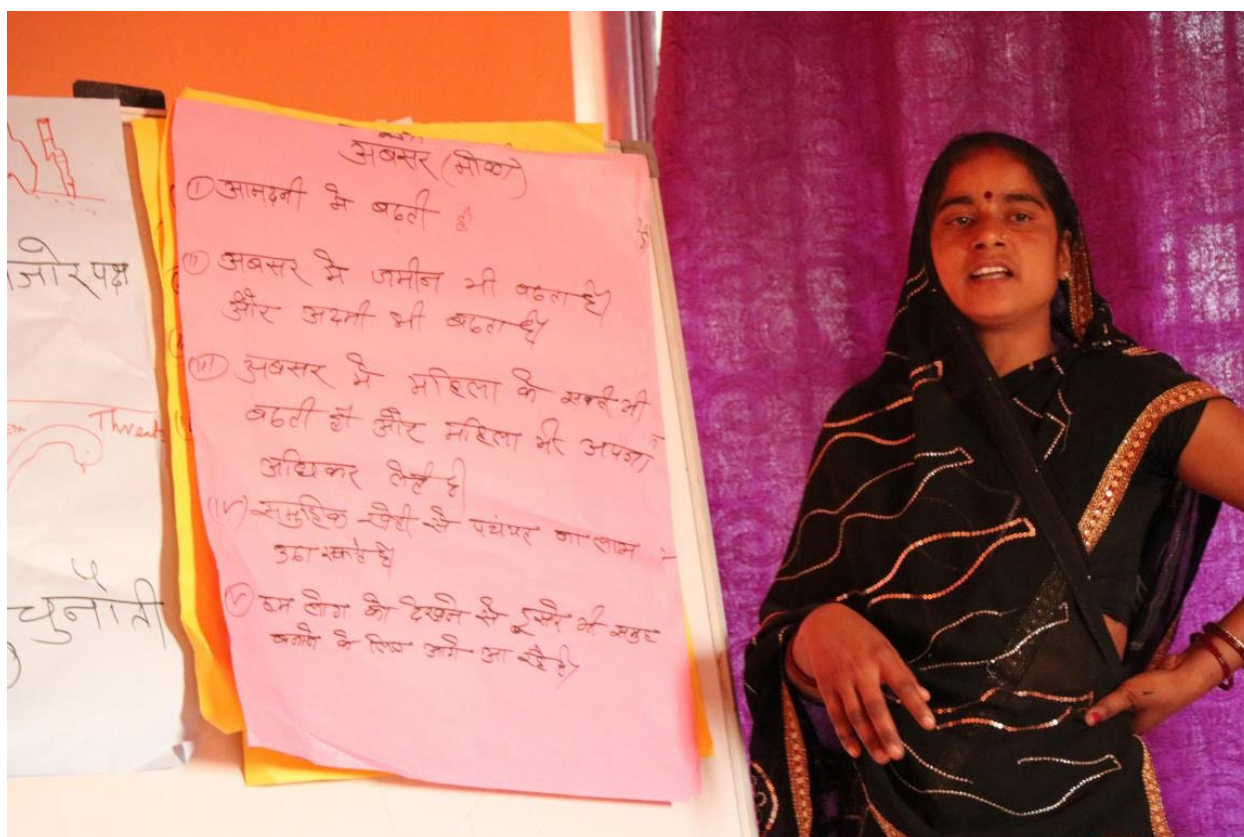 जोर पक्ष
Threat
चुनौती
अबसर (मौका)
(I) आमदनी मे बढती है
(II) अबसर मे जमीन भी बढता है।
और अदमी भी बढता है।
(III) अबसर मे महिला के भी
बढती है और महिला भी अपना
अधिकार लेती है।
(IV) समुहिक खेती से पचंयत का लाभ
उठा सकते है।
(V) हम लोग को देखने से दूसरे भी समुह
बनाने के लिए आगे आ रहे है।